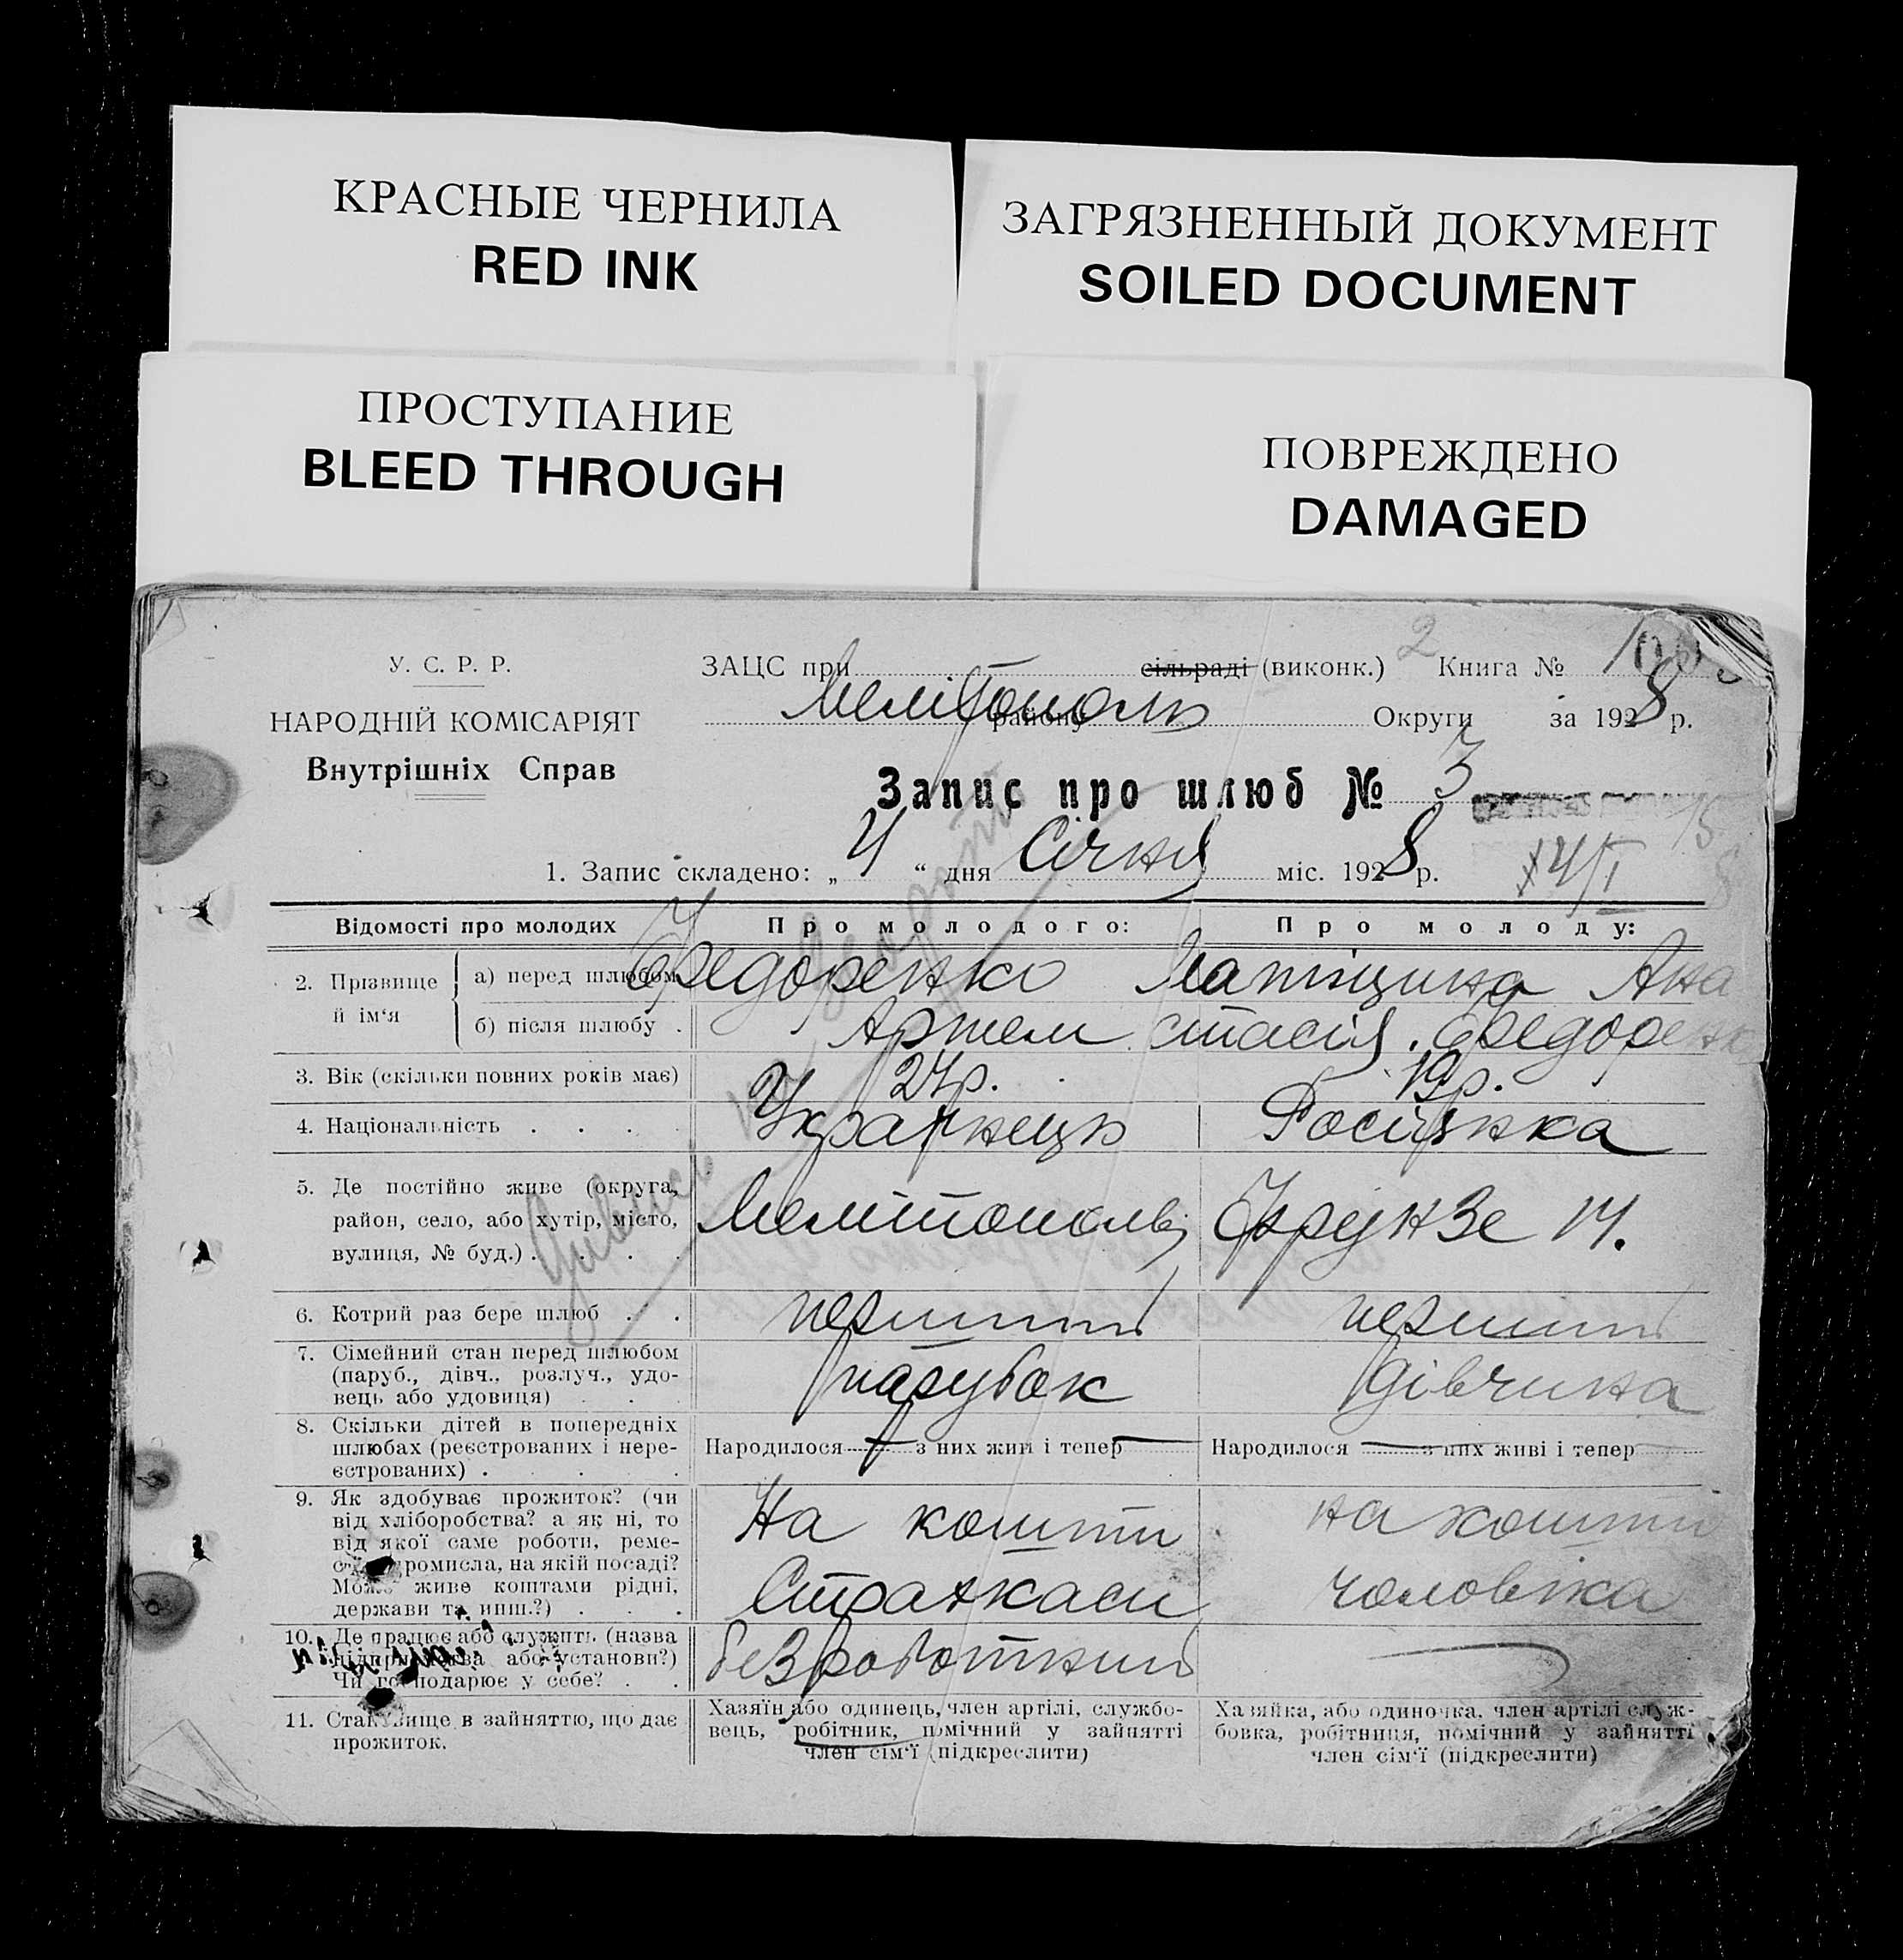 КРАСНЫЕ ЧЕРНИЛА
RED INK
ЗАГРЯЗНЕННЫЙ ДОКУМЕНТ
SOILED DOCUMENT
ПРОСТУПАНИЕ
BLEED THROUGH
ПОВРЕЖДЕНО
DAMAGED
2
У. С. Р. Р.
НАРОДНІЙ КОМІСАРІЯТ
Внутрішніх Справ
ЗАЦС при сільраді (виконк.) Книга №
Мелітополь району Округи за 1928 р.
Запис про шлюб № 3
1. Запис складено: „ 4 “ дня Січня міс. 1928 р.
Відомості про молодих
Про молодого:
Про молоду:
2. Прізвище й ім‘я
а) перед шлюбом
б) після шлюбу .
Федоренко
Артем
Лапшина Ана
стасія. Федоренк
3. Вік (скільки повних років має)
24р.
19р.
4. Національність . . . .
Українець
Росіянка
5. Де постійно живе (округа,
район, село, або хутір, місто,
вулиця, № буд.) . . . .
Мелітополь, Фрунзе 14.
6. Котрий раз бере шлюб . . .
перший
перший
7. Сімейний стан перед шлюбом
(паруб., дівч., розлуч., удо-
вець або удовиця) . . .
парубок
дівчина
8. Скільки дітей в попередніх
шлюбах (реєстрованих і нере-
єстрованих) . . . .
Народилося — з них живі і тепер —
Народилося — з них живі і тепер —
9. Як здобуває прожиток? (чи
від хліборобства? а як ні, то
від якої саме роботи, реме-
ромисла, на якій посаді?
живе коштами рідні,
держави та инш.?) . . .
На кошти
Страхкаси
на кошти
чоловіка
10. Де працює або служить (назва
або установи?)
Чи господарює у себе? . .
безроботний
—
11. Становище в зайняттю, що дає
прожиток.
Хазяїн або одинець, член артілі, службо-
вець, робітник, помічний у зайнятті
член сім‘ї (підкреслити)
Хазяйка, або одиночка, член артілі служ-
бовка, робітниця, помічний у зайнятті
член сім‘ї (підкреслити)